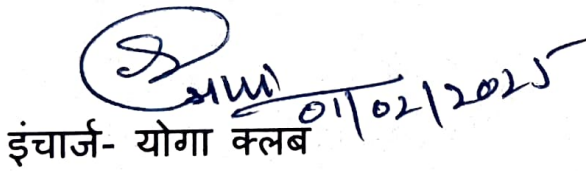 01/02/2025
इंचार्ज- योगा क्लब